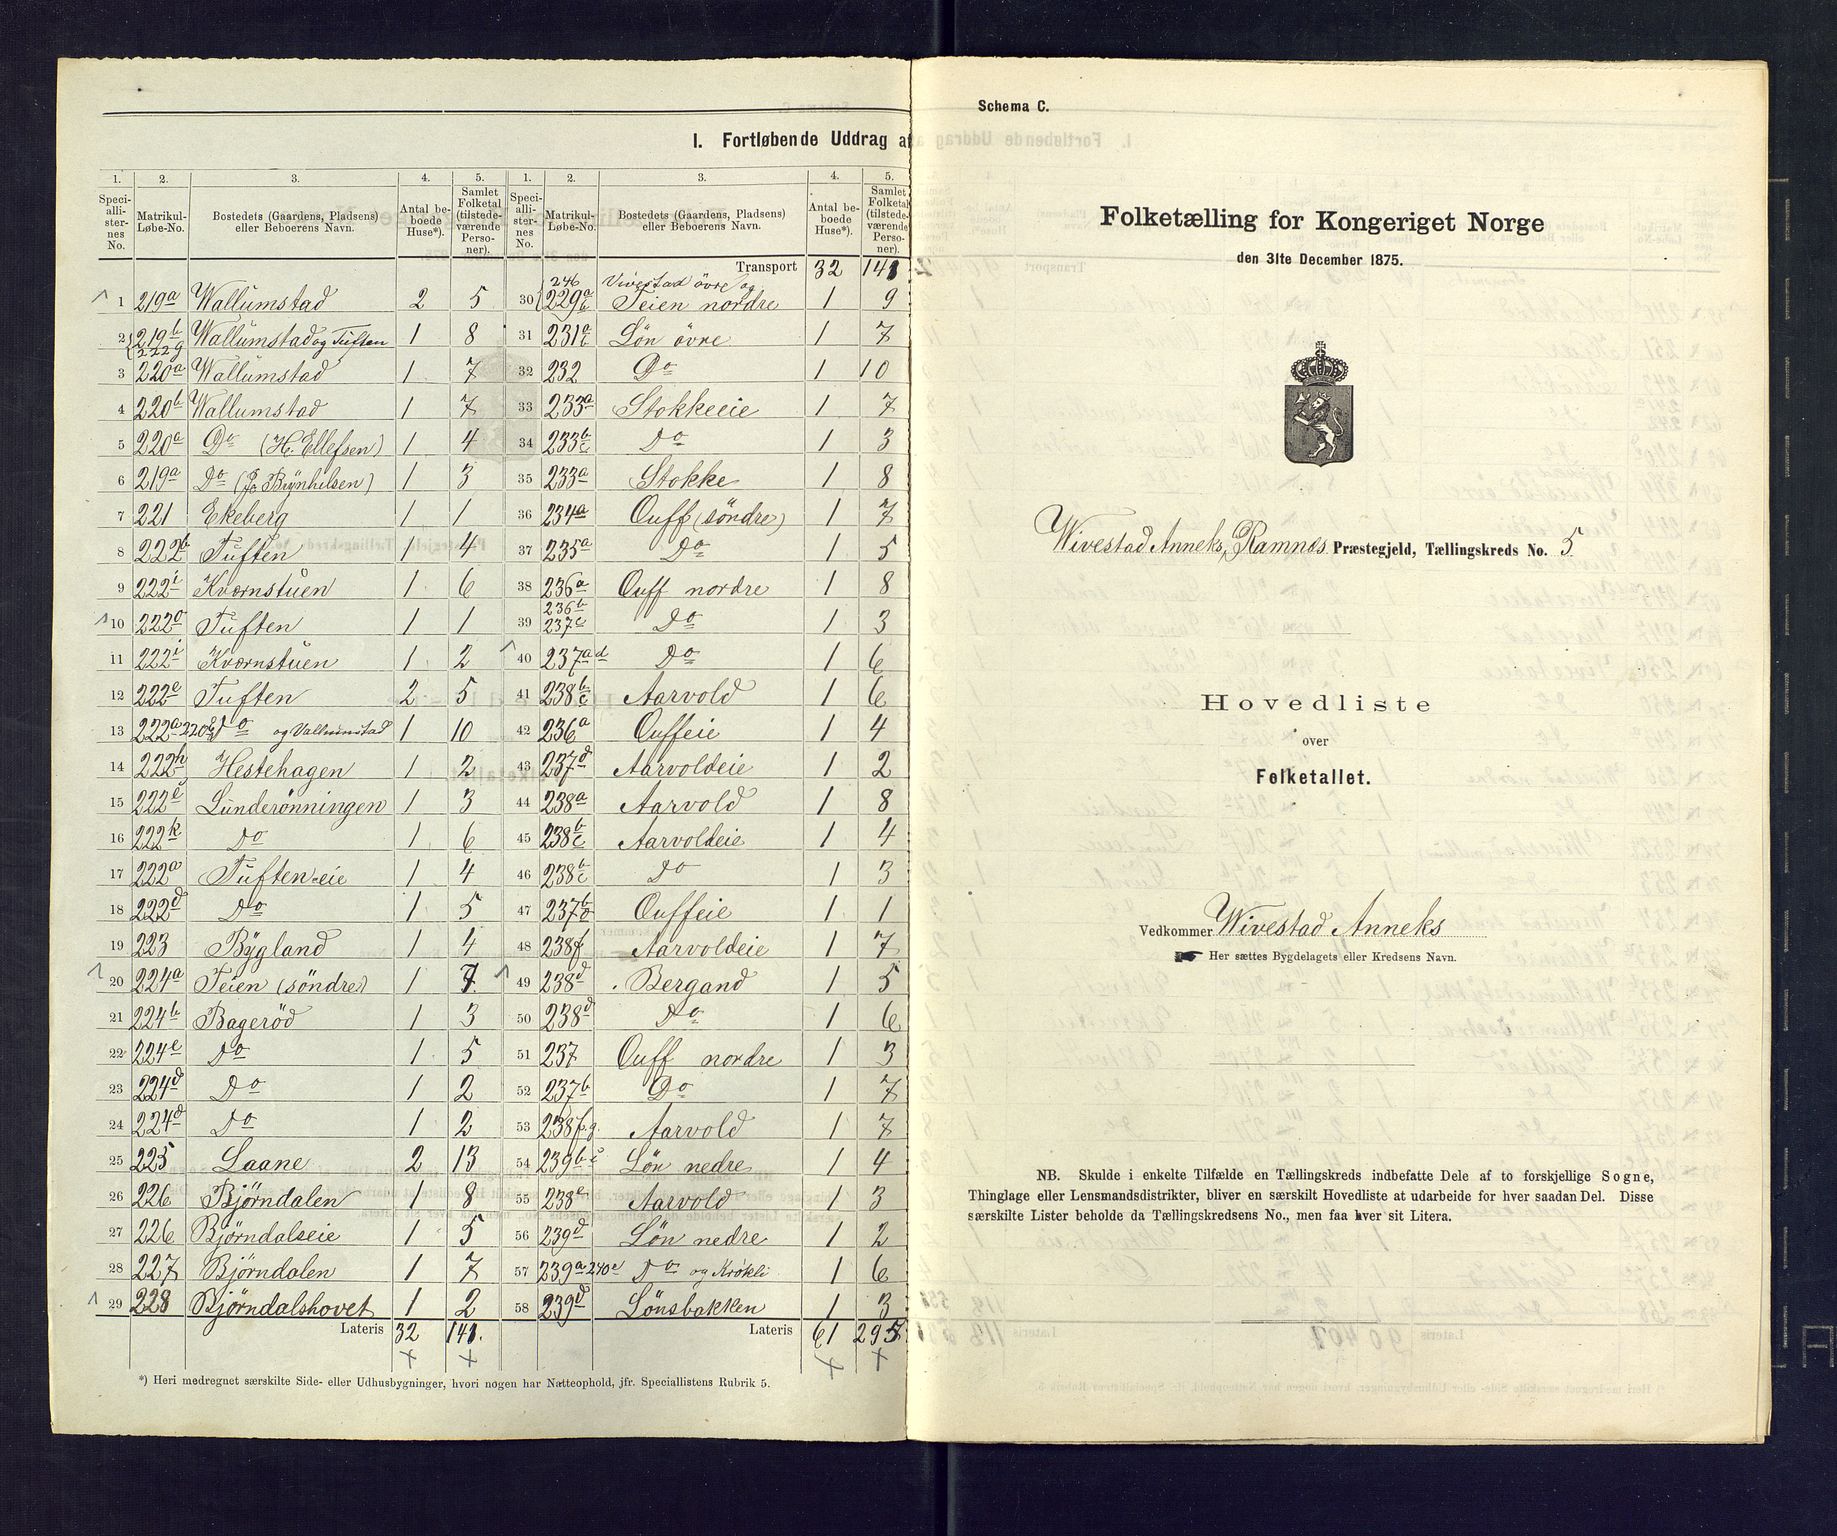 I. Fortløbende Uddrag af
1. 2. 3. 4. 5. 1. 2. 3. 4. 5.
Speciallisternes No. Matrikul-Løbe-No. Bostedets (Gaardens, Pladsens) eller Beboerens Navn. Antal beboede Huse*). Samlet Folketal (tilstedeværende Personer). Speciallisternes No. Matrikul-Løbe-No. Bostedets (Gaardens, Pladsens) eller Beboerens Navn. Antal beboede Huse*). Samlet Folketal (tilstedeværende Personer).
Transport 32 141
1 219a Wallumstad 2 5
2 219b 222g Wallumstad og Tuften 1 8
3 220a Wallumstad 1 7
4 220b Wallumstad 1 7
5 220a Do (H. Ellefsen) 1 4
6 219a Do (J. Brynhilsen) 1 3
7 221 Ekeberg 1 1
8 222b Tuften 1 4
9 222i Kværnstuen 1 6
10 222o Tuften 1 1
11 222i Kværnstuen 1 2
12 222e Tuften 2 5
13 222a 220 Do og Vallumstad 1 10
14 222h Hestehagen 1 2
15 222c Lunderönningen 1 3
16 222k Do 1 6
17 222a Tuften-eie 1 4
18 222d Do 1 5
19 223 Bygland 1 4
20 224a Teien (söndre) 1 7
21 224b Bageröd 1 3
22 224c Do 1 5
23 224d Do 1 2
24 224d Do 1 2
25 225 Laane 2 13
26 226 Bjørndalen 1 8
27 226 Bjørndalseie 1 5
28 227 Bjørndalen 1 7
29 228 Bjørndalshovet 1 2
Lateris 32 141.
30 246 229a b Vivestad övre og Teien nordre 1 9
31 231a c Lön övre 1 7
32 232 Do 1 10
33 233a Stokkeeie 1 7
34 233b c Do 1 3
35 233a Stokke 1 8
36 234a Ouff (söndre) 1 7
37 235a Do 1 5
38 236a Ouff nordre 1 8
39 236b 237c Do 1 3
40 237a d Do 1 6
41 238b c Aarvold 1 6
42 236a Ouffeie 1 4
43 237d Aarvoldeie 1 2
44 238a Aarvold 1 8
45 238b c Aarvoldeie 1 4
46 238b c Do 1 3
47 237b Ouffeie 1 1
48 238f Aarvoldeie 1 7
49 238d Bergand 1 5
50 238d Do 1 6
51 237 Ouff nordre 1 3
52 237b Do 1 7
53 238f.g. Aarvold 1 7
54 239b c Lön nedre 1 4
55 238e Aarvold 1 3
56 239d Lön nedre 1 2
57 239a 240e Do og Krökli 1 6
58 239d Lönsbakken 1 3
Lateris 61 295
*) Heri medregnet særskilte Side- eller Udhusbygninger, hvori nogen har Natteophold, jfr. Speciallistens Rubrik 5.
Schema C.
Folketælling for Kongeriget Norge
den 31te December 1875.
Wivestad Anneks, Ramnes Præstegjeld, Tællingskreds No. 5
Hovedliste
over
Folketallet.
Vedkommer Wivestad Anneks
Her sættes Bygdelagets eller Kredsens Navn.
NB. Skulde i enkelte Tilfælde en Tællingskreds indbefatte Dele af to forskjellige Sogne,
Thinglage eller Lensmandsdistrikter, bliver en særskilt Hovedliste at udarbeide for hver saadan Del. Disse
særskilte Lister beholde da Tællingskredsens No., men faa hver sit Litera.